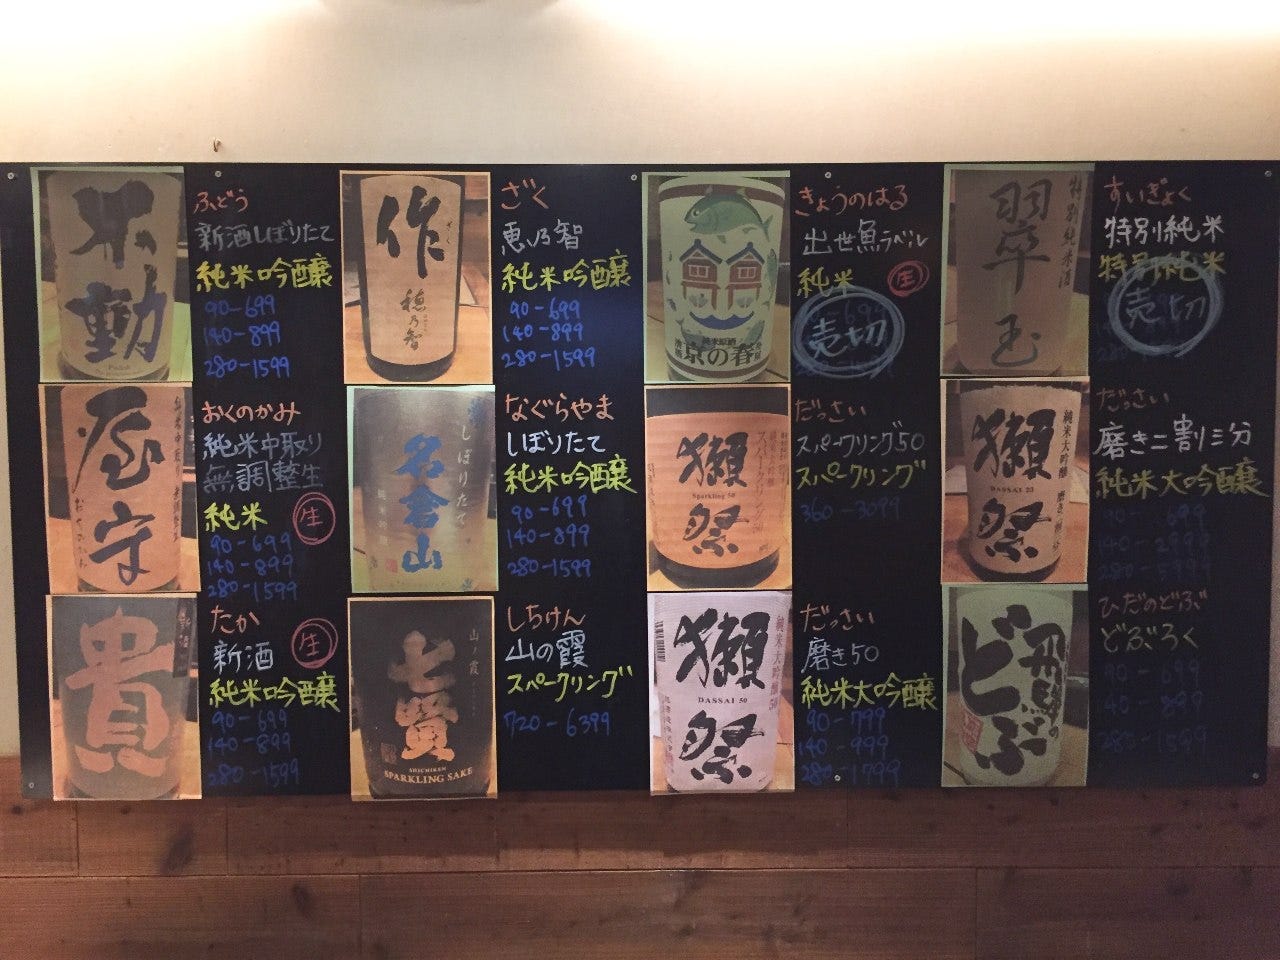 不動
ふどう
新酒しぼりたて
純米吟醸
90-699
140-899
280-1599
作
ざく
穂乃智
ざく
恵乃智
純米吟醸
90-699
140-899
280-1599
純米原酒
京の春
きょうのはる
出世魚ラベル
純米
生
売切
翠玉
特別純米酒
すいぎょく
特別純米
特別純米
売切
屋守
おくのかみ
純米中取り
無調整生
純米
生
90-699
140-899
280-1599
名倉山
しぼりたて
純米吟醸
なぐらやま
しぼりたて
純米吟醸
90-699
140-899
280-1599
獺祭
Sparkling 50
だっさい
スパークリング50
スパークリング
360-3099
獺祭
純米大吟醸 磨き二割三分
DASSAI 23
だっさい
磨き二割三分
純米大吟醸
90-699
140-2999
280-5999
貴
新酒
たか
新酒
生
純米吟醸
90-699
140-899
280-1599
七賢
山ノ霞
SHICHIKEN
SPARKLING SAKE
しちけん
山の霞
スパークリング
720-6399
獺祭
純米大吟醸50
DASSAI 50
だっさい
磨き50
純米大吟醸
90-799
140-999
280-1799
飛騨の
どぶ
ひだのどぶ
どぶろく
90-699
40-899
280-1599